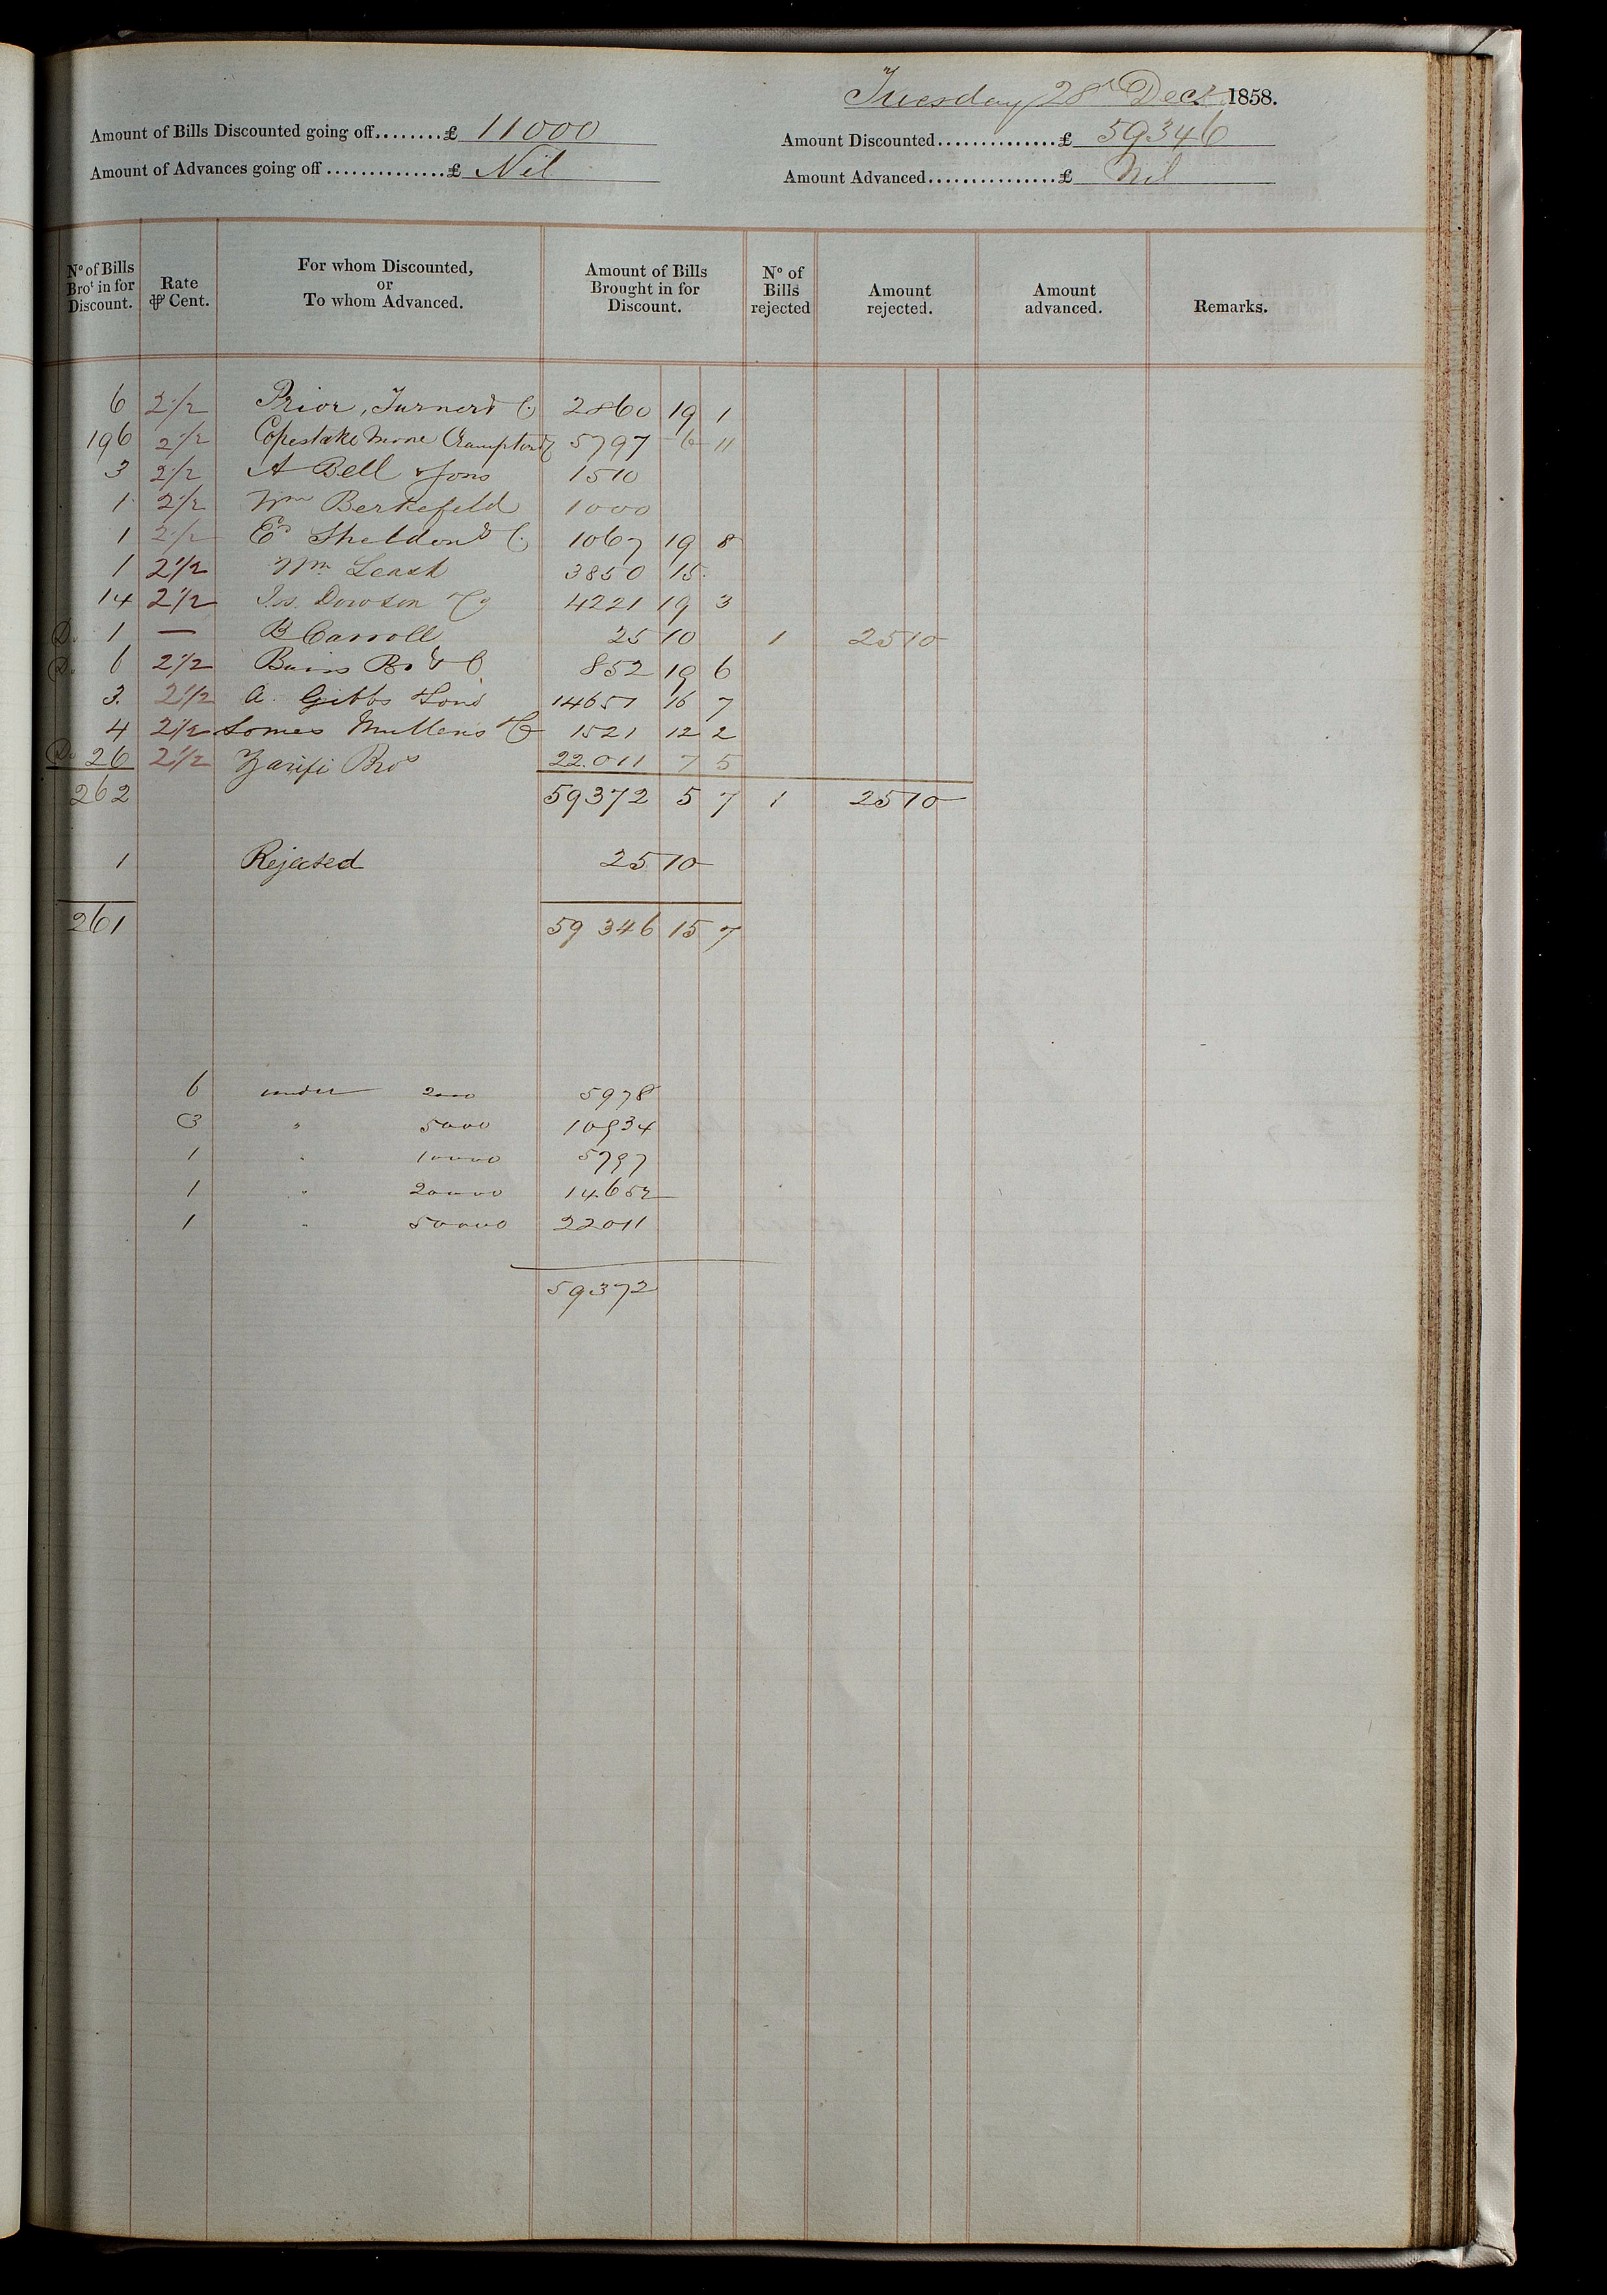 Tuesday 28th Decr 1858.
Amount of Bills Discounted going off........£ 11000
Amount Discounted..............£ 59346
Amount of Advances going off...............£ Nil
Amount Advanced................£ Nil
No of Bills Brot in for Discount. | Rate ⅌ Cent. | For whom Discounted, or To whom Advanced. | Amount of Bills Brought in for Discount. | No of Bills rejected | Amount rejected. | Amount advanced. | Remarks.
6 2 1/2 Prior, Turner & Co 2860 19 1
196 2 1/2 Copestake Moore Crampton & Co 5797 6 11
3 2 1/2 A Bell & Sons 1510
1 2 1/2 Wm Berkefeld 1000
1 2 1/2 Ed Sheldon & Co 1067 19 8
1 2 1/2 Wm Leask 3850 15
14 2 1/2 Jos. Dowson & Co 4221 19 3
Do 1 — B Carroll 25 10 1 25 10
Do 6 2 1/2 Bros & Co 852 19 6
3. 2 1/2 A. Gibbs & Sons 14651 16 7
4 2 1/2 Somes Mullens & Co 1521 12 2
Do 26 2 1/2 Zarifi Bros 22.011 7 5
262 59372 5 7 1 25 10
1 Rejected 25 10
261 59 346 15 7
6 under 2000 5978
3 " 5000 10934
1 " 10000 5797
1 " 20000 14.652
1 " 50000 22011
59372